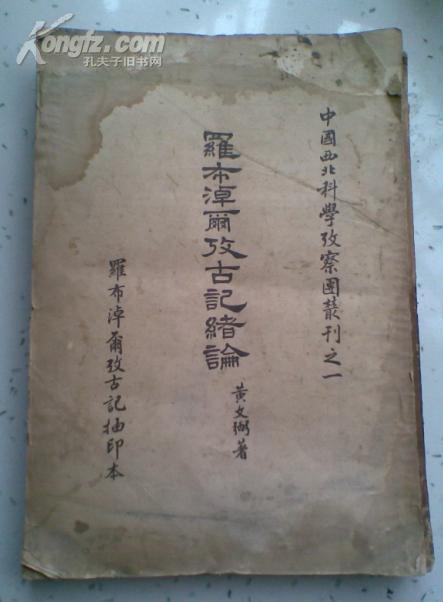 Kongfz.com
孔夫子旧书网
中國西北科學攷察團叢刊之一
羅布淖爾攷古記緒論
黃文弼著
羅布淖爾攷古記抽印本